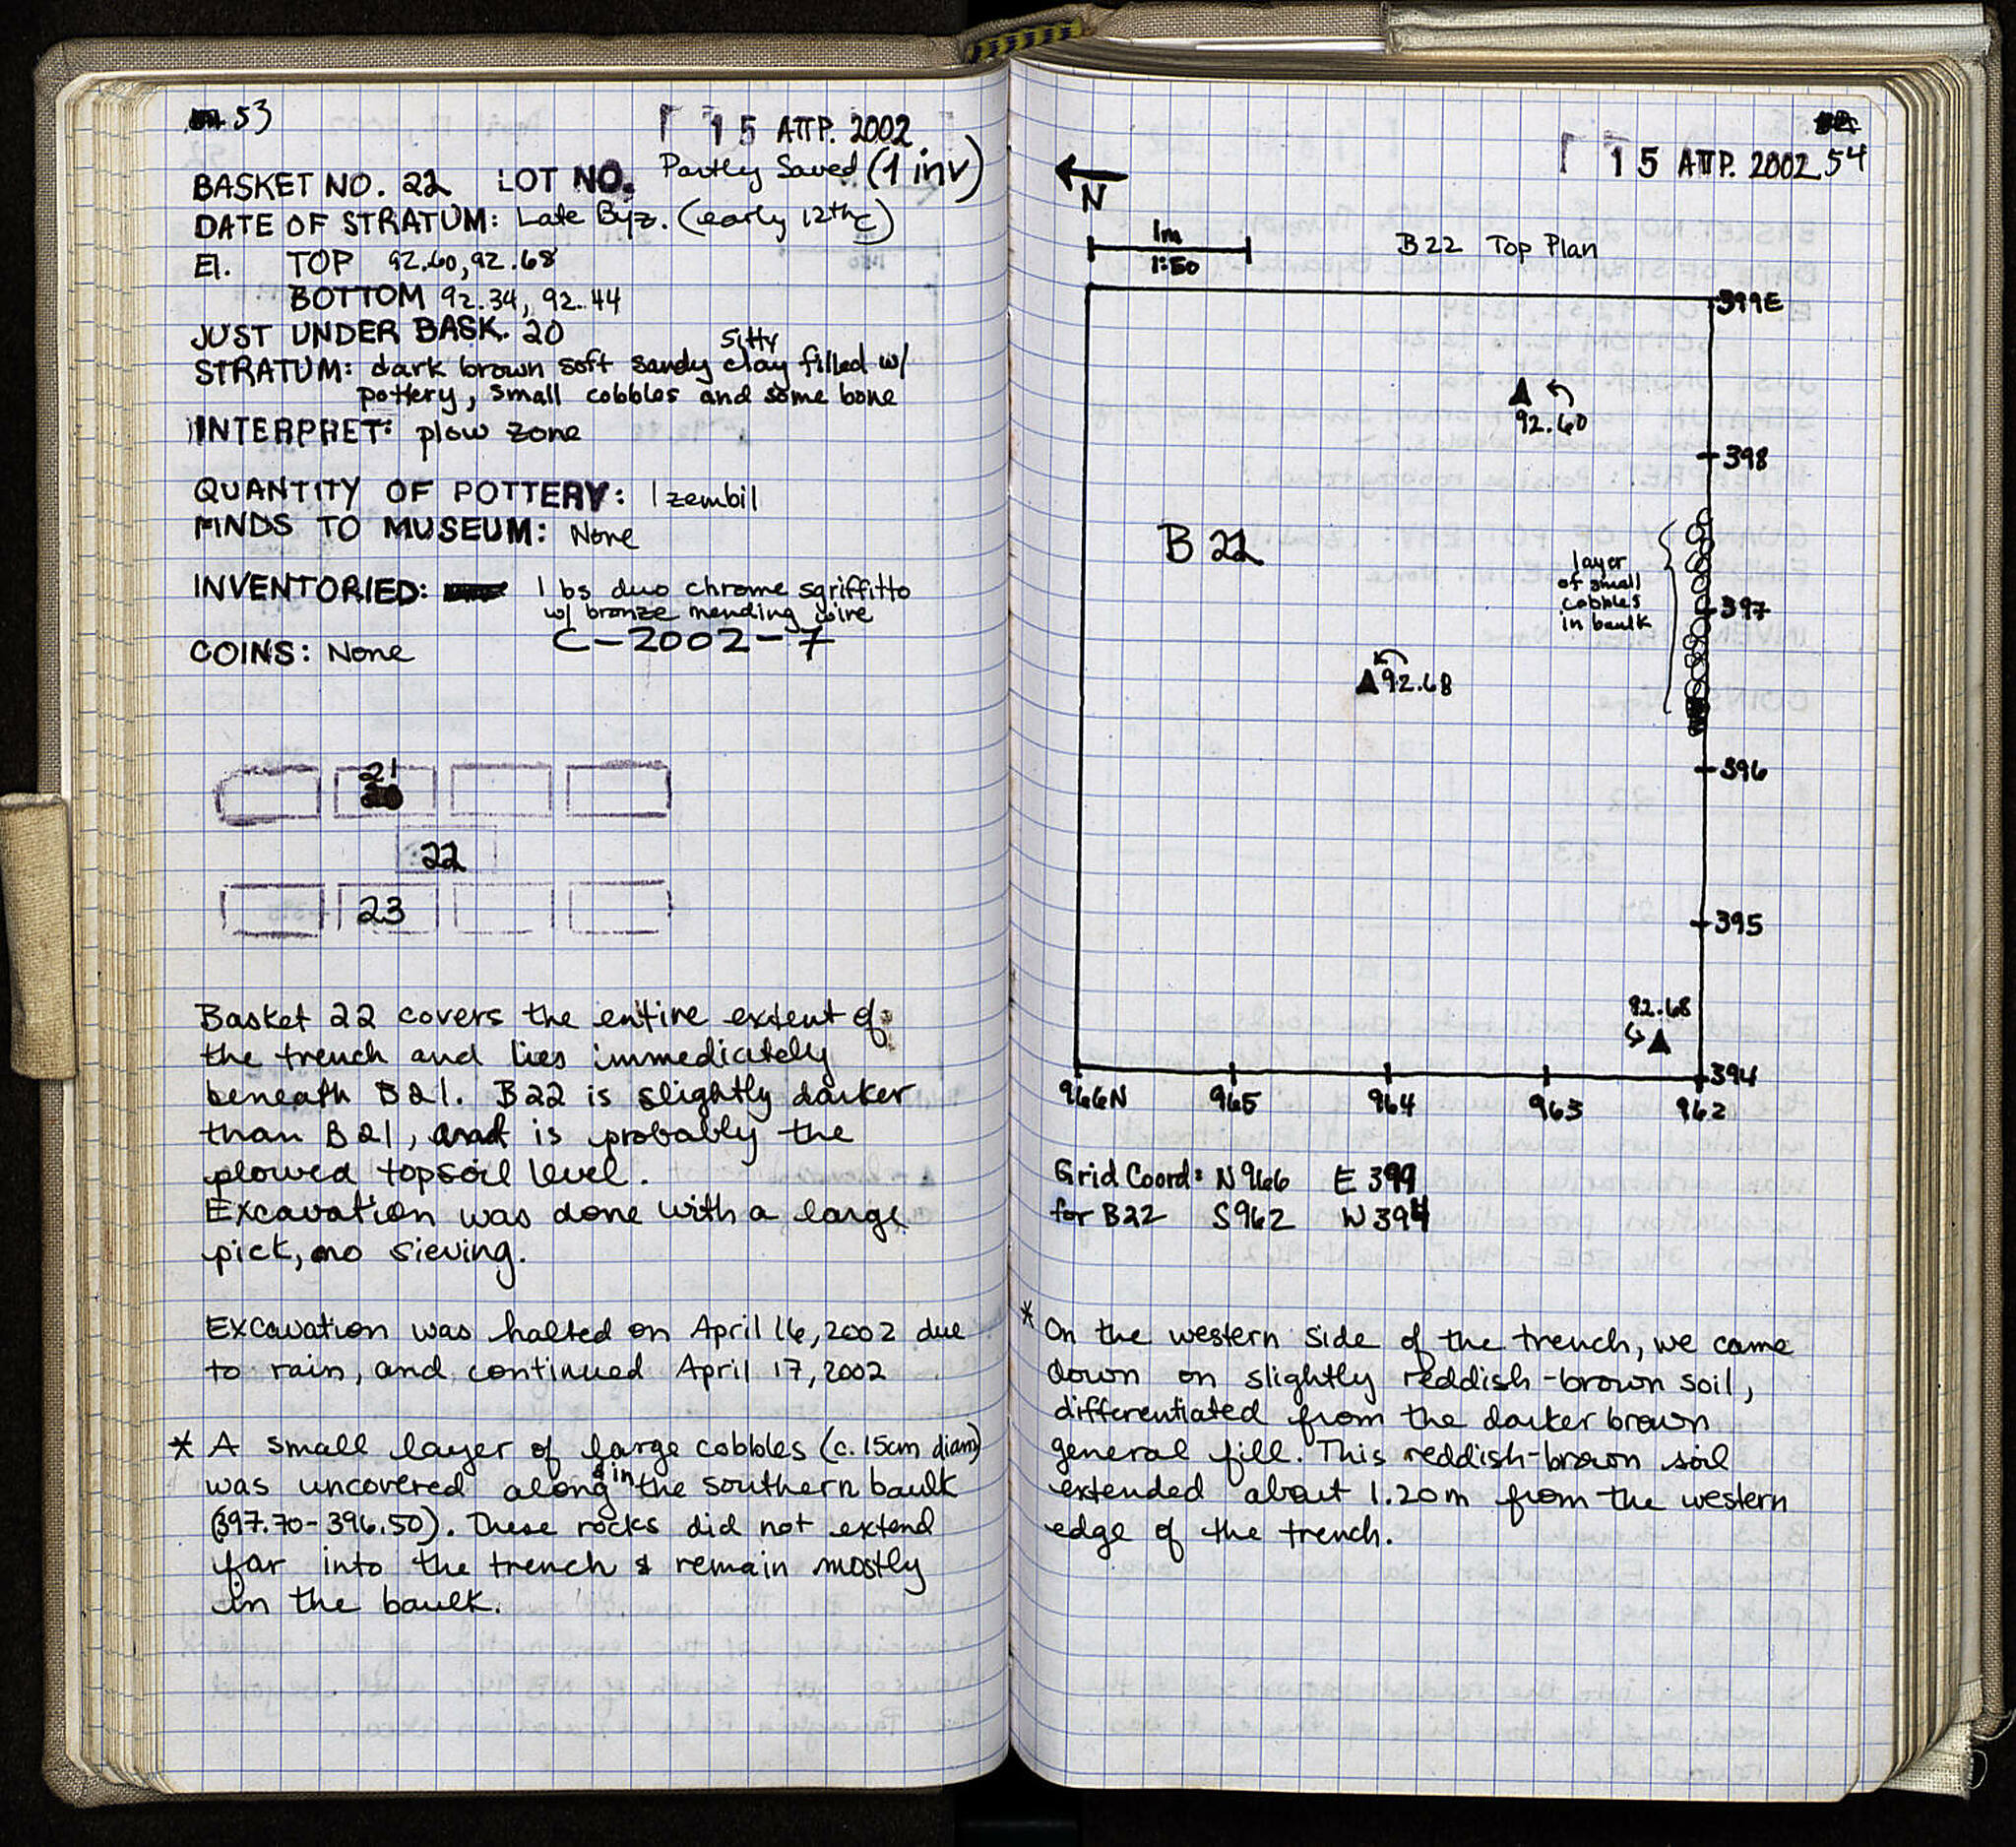 53
15 ΑΠΡ. 2002
BASKET NO. 22 LOT NO. Partly Saved (1 inv)
DATE OF STRATUM: Late Byz. (early 12th c)
El. TOP 92.60, 92.68
BOTTOM 92.34, 92.44
JUST UNDER BASK. 20
silty
STRATUM: dark brown soft sandy clay filled w/
pottery, small cobbles and some bone
INTERPRET: plow zone
QUANTITY OF POTTERY: 1 zembil
FINDS TO MUSEUM: None
INVENTORIED: 1 bs duo chrome sgriffitto
w/ bronze mending wire
C-2002-7
COINS: None
21
22
23
Basket 22 covers the entire extent of
the trench and lies immediately
beneath B21. B22 is slightly darker
than B21, and is probably the
plowed topsoil level.
Excavation was done with a large
pick, no sieving.
Excavation was halted on April 16, 2002 due
to rain, and continued April 17, 2002
* A small layer of large cobbles (c. 15cm diam)
was uncovered along & in the southern baulk
(397.70-396.50). These rocks did not extend
far into the trench & remain mostly
in the baulk.
15 ΑΠΡ. 2002 54
N
1m
1:50
B22 Top Plan
399E
92.60
398
B 22
layer
of small
cobbles
in baulk
397
92.68
396
395
92.68
394
966N 965 964 963 962
Grid Coord: N966 E 399
for B22 S962 W 394
* On the western side of the trench, we came
down on slightly reddish-brown soil,
differentiated from the darker brown
general fill. This reddish-brown soil
extended about 1.20m from the western
edge of the trench.